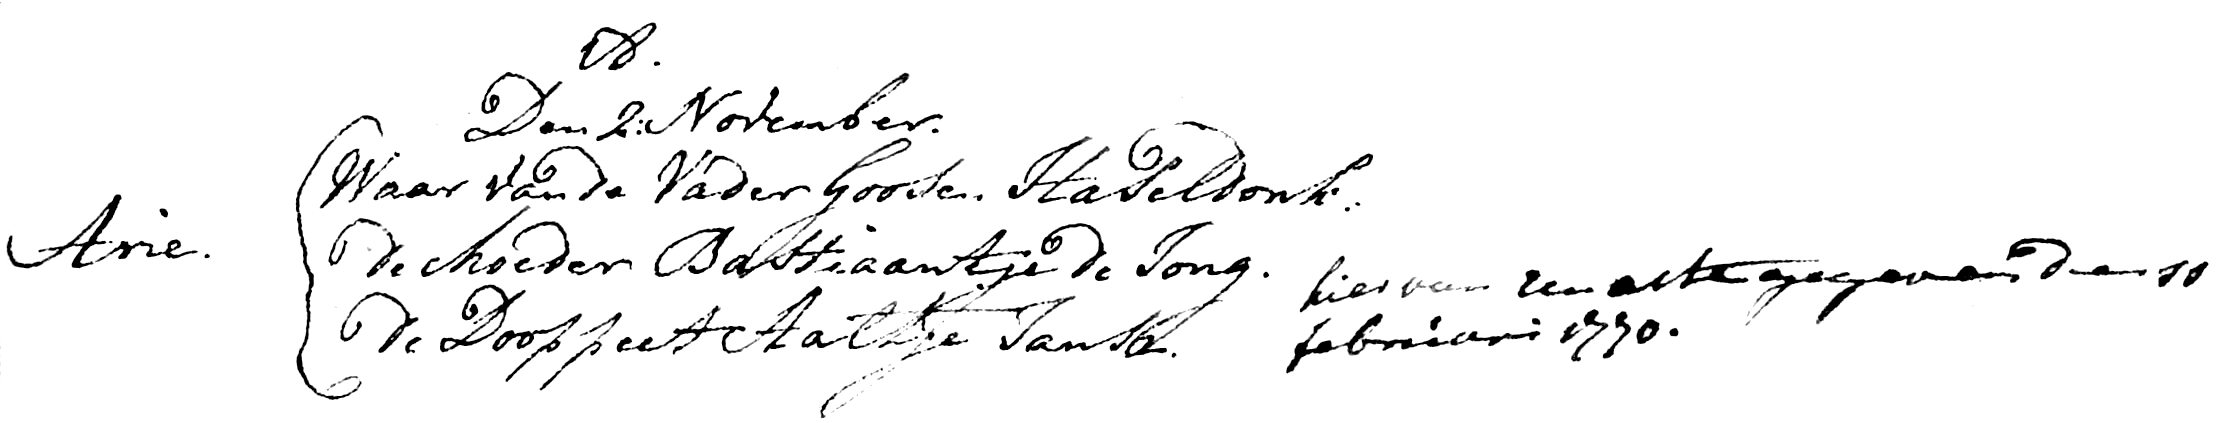 D.
Den 2. November.
Waar van de Vader Goosen Haseldonk.
Arie. de Moeder Bastiaantje de Jong.
de Dooppeet Aaltje Jansse.
hier van een acte gegeven den 11
februari 1770.